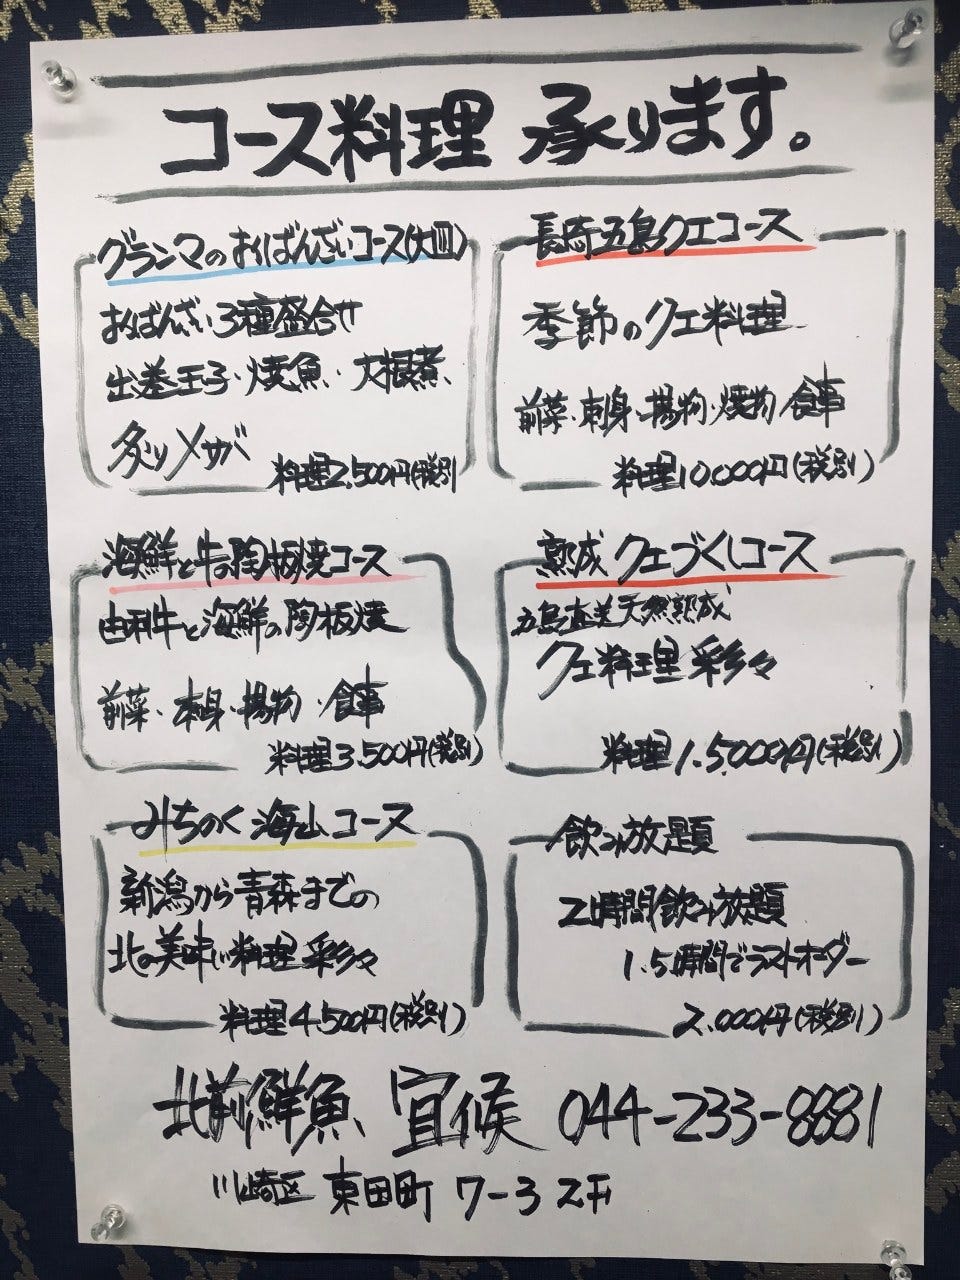 コース料理 承ります。
グランマのおばんざいコース(大皿)
おばんざい3種盛合せ
出巻玉子・焼魚・大根煮
炙り〆サバ
料理2,500円(税別)
長崎五島クエコース
季節のクエ料理
前菜・刺身・揚物・焼物・食事
料理10,000円(税別)
海鮮と牛の陶板焼コース
由利牛と海鮮の陶板焼
前菜・刺身・揚物・食事
料理3,500円(税別)
熟成クエづくしコース
五島直送天然熟成
クエ料理 彩々
料理1.5,000円(税別)
みちのく海山コース
新潟から青森までの
北の美味い料理彩々
料理4,500円(税別)
飲み放題
2時間飲み放題
1.5時間でラストオーダー
2,000円(税別)
北前鮮魚 宜候 044-233-8881
川崎区 東田町 7-3 2F